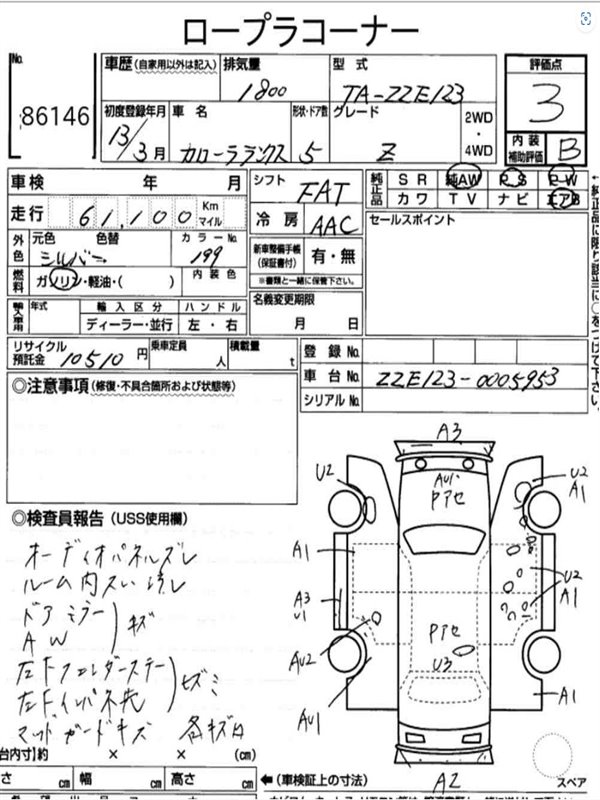 ロープラコーナー
No. 86146
車歴(自家用以外は記入) 排気量 1800 型式 TA-ZZE123
初度登録年月 13/3月 車名 カローラランクス 形状・ドア数 5 グレード Z 2WD・4WD
評価点 3
内装補助評価 B
車検 年 月
走行 61,100 Km マイル
外色 元色 シルバー 色替 カラーNo. 199
燃料 ガソリン・軽油・( ) 内装色
輸入車用 年式 輸入区分 ディーラー・並行 ハンドル 左・右
リサイクル預託金 10510円 乗車定員 人 積載量 t
シフト FAT
冷房 AAC
新車整備手帳(保証書付) 有・無
※書類と一緒に保管下さい。
名義変更期限 月 日
純正品 SR 純AW P S P W
カワ TV ナビ エアB
セールスポイント
←純正品に限り該当に○をつけて下さい。
登録No.
車台No. ZZE123-0005953
シリアルNo.
◎注意事項(修復・不具合箇所および状態等)
◎検査員報告(USS使用欄)
オーディオパネルズレ
ルーム内スレ汚レ
ドアミラー
AW
キズ
左Fフェンダーステー
左Fインパネ先
マッドガードキズ
A3
U2
AU1
Pアセ
U2
A1
A1
A3
U1
U2
A1
AU2
Pアセ
U3
AU1
A1
A2
スペア
台内寸】約 × × (cm)
さ cm 幅 cm 高さ cm
←(車検証上の寸法)